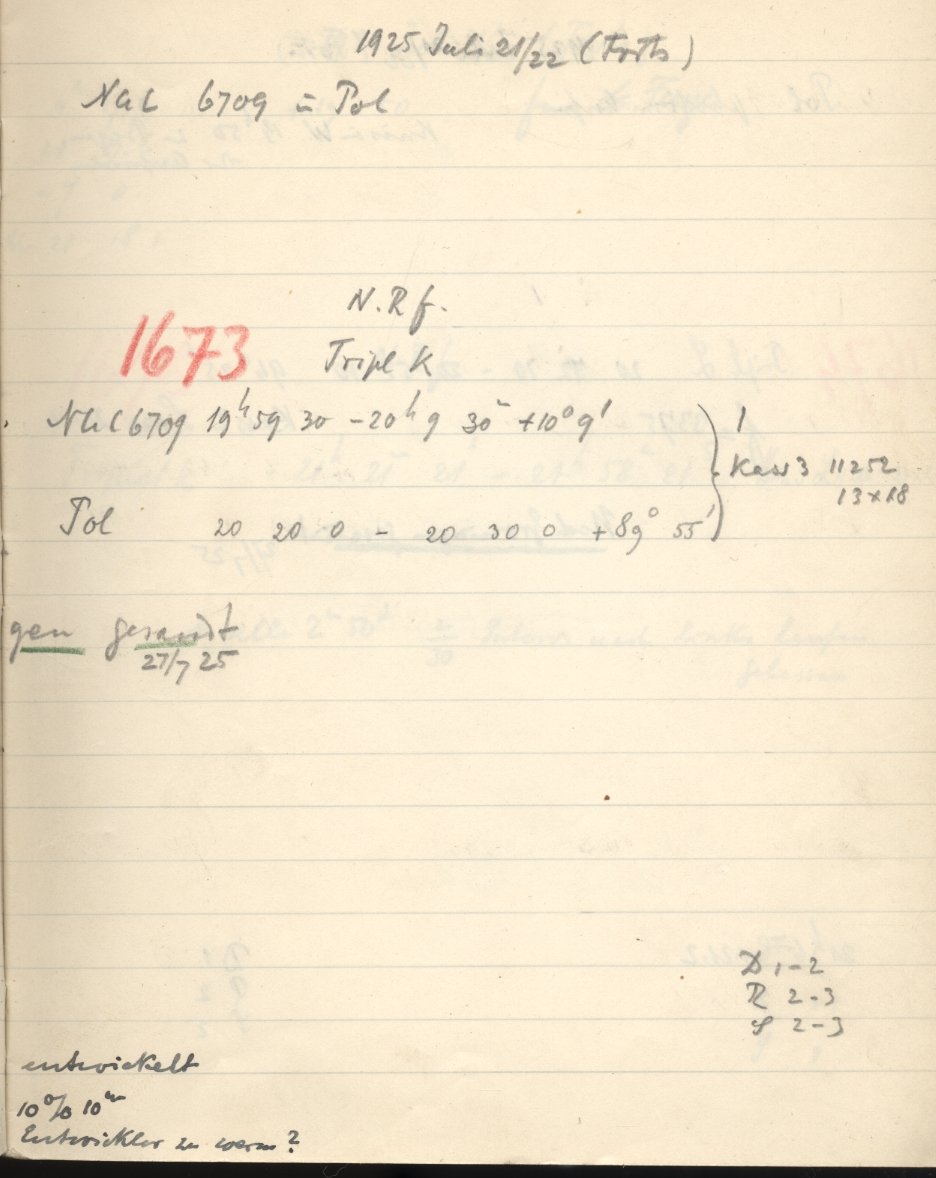 1925 Juli 21/22 (Forts)
NGC 6709 u Pol
N.Rf.
1673
Tripl K
NGC 6709 19h 59 30 - 20h 9 30 +10° 9'
1
Kass 3 11252
13x18
Pol 20 20 0 - 20 30 0 +89° 55'
gen gesandt
27/7 25
D 1-2
R 2-3
S 2-3
entwickelt
10% 10m
Entwickler zu warm?